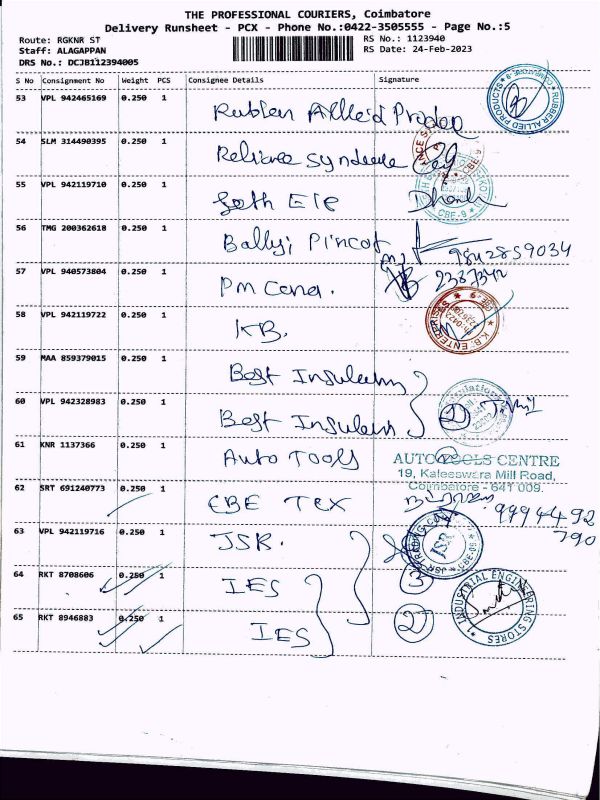 THE PROFESSIONAL COURIERS, Coimbatore
Delivery Runsheet - PCX - Phone No.:0422-3505555 - Page No.:5
Route: RGKNR ST
RS No.: 1123940
Staff: ALAGAPPAN
RS Date: 24-Feb-2023
DRS No.: DCJB112394005
S No Consignment No Weight PCS Consignee Details Signature
53 VPL 942465169 0.250 1 Allied
RUBBER ALLIED PRODUCTS
54 SLM 314490395 0.250 1 Reliance
55 VPL 942119710 0.250 1
CBE-9
56 TMG 200362618 0.250 1 Pincot
9842859034
57 VPL 940573804 0.250 1 PM Cana. 2387342
58 VPL 942119722 0.250 1 KB.
K.B. ENTERPRISES
59 MAA 859379015 0.250 1 Best
60 VPL 942328983 0.250 1 Best 2
61 KNR 1137366 0.250 1 Auto Tools
AUTO TOOLS CENTRE
19, Kaleeswara Mill Road,
Coimbatore - 641 009.
62 SRT 691240773 0.250 1 CBE Tex
9994492
790
63 VPL 942119716 0.250 1 JSR.
JSR TRADING
JSR
64 RKT 8708606 0.250 1 IES 3
65 RKT 8946883 0.250 1 IES 2
INDUSTRIAL ENGINEERING STORES